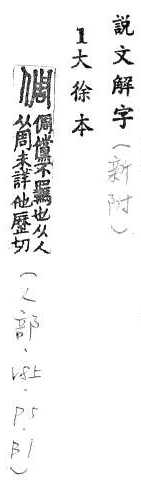 説文解字（新附）
1大徐本
倜 倜儻不羈也从人
从周未詳他歷切
（人部．
P5．
B1）